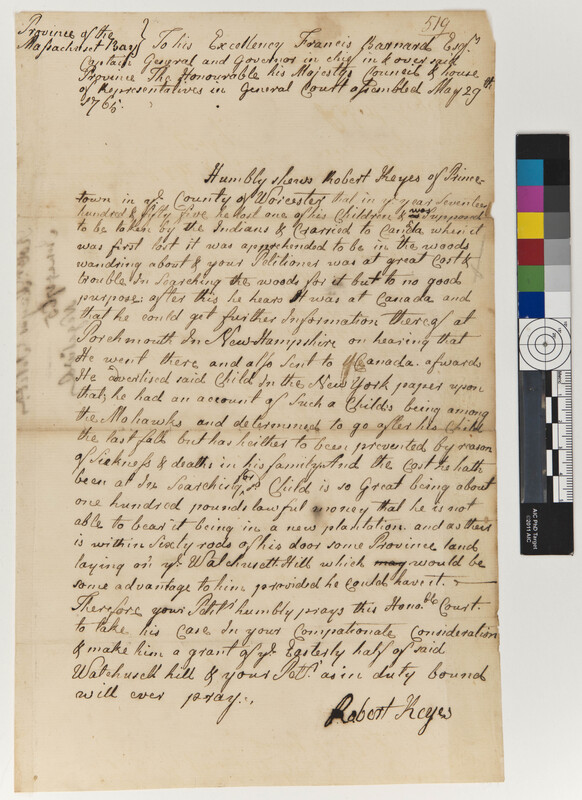 519
Province of the
Massachuset Bay
To his Excellency Francis Barnard Esqr.
Captain General and Governor in chief in & over said
Province The Honourable his Majestys Council & house
of Representatives in General Court assembled May 29th
1765.
Humbly shews Robert Keyes of Prince-
town in ye. County of Worcester that in ye. year Seventeen
hundred & fifty five he lost one of his Children & was
to be taken by the Indians & Carried to Canada when it
was first lost it was apprehended to be in the woods
wandring about & your Petitioner was at great Cost &
trouble In Searching the woods for it but to no good
purpose after this he heard It was at Canada and
that he could get further Information thereof at
Porchmouth In New Hampsshire on hearing that
He went there and also Sent to Canada. afwards
He advertised said Child In the New York paper upon
that he had an account of Such a Childs being among
the Mohawks and determined to go after his Child
the last fall but has heither to been prevented by reason
of Sickness & deaths in his family And the Cost he hath
been at In Searching for sd Child is so Great being about
one hundred pounds lawful money that he is not
able to bear it being in a new plantation and as there
is within Sixty rods of his door some Province land
laying on ye. Watchusett Hill which may would be
some advantage to him provided he could have it.
Therefore your Petitr. humbly prays this Honoble Court.
to take his Case In your Compationate Consideration
& make him a grant of ye. Easterly half of said
Watchusett hill & your Petr. as in duty bound
will ever pray.
Robert Keyes
AIC PhD Target
©2011 AIC